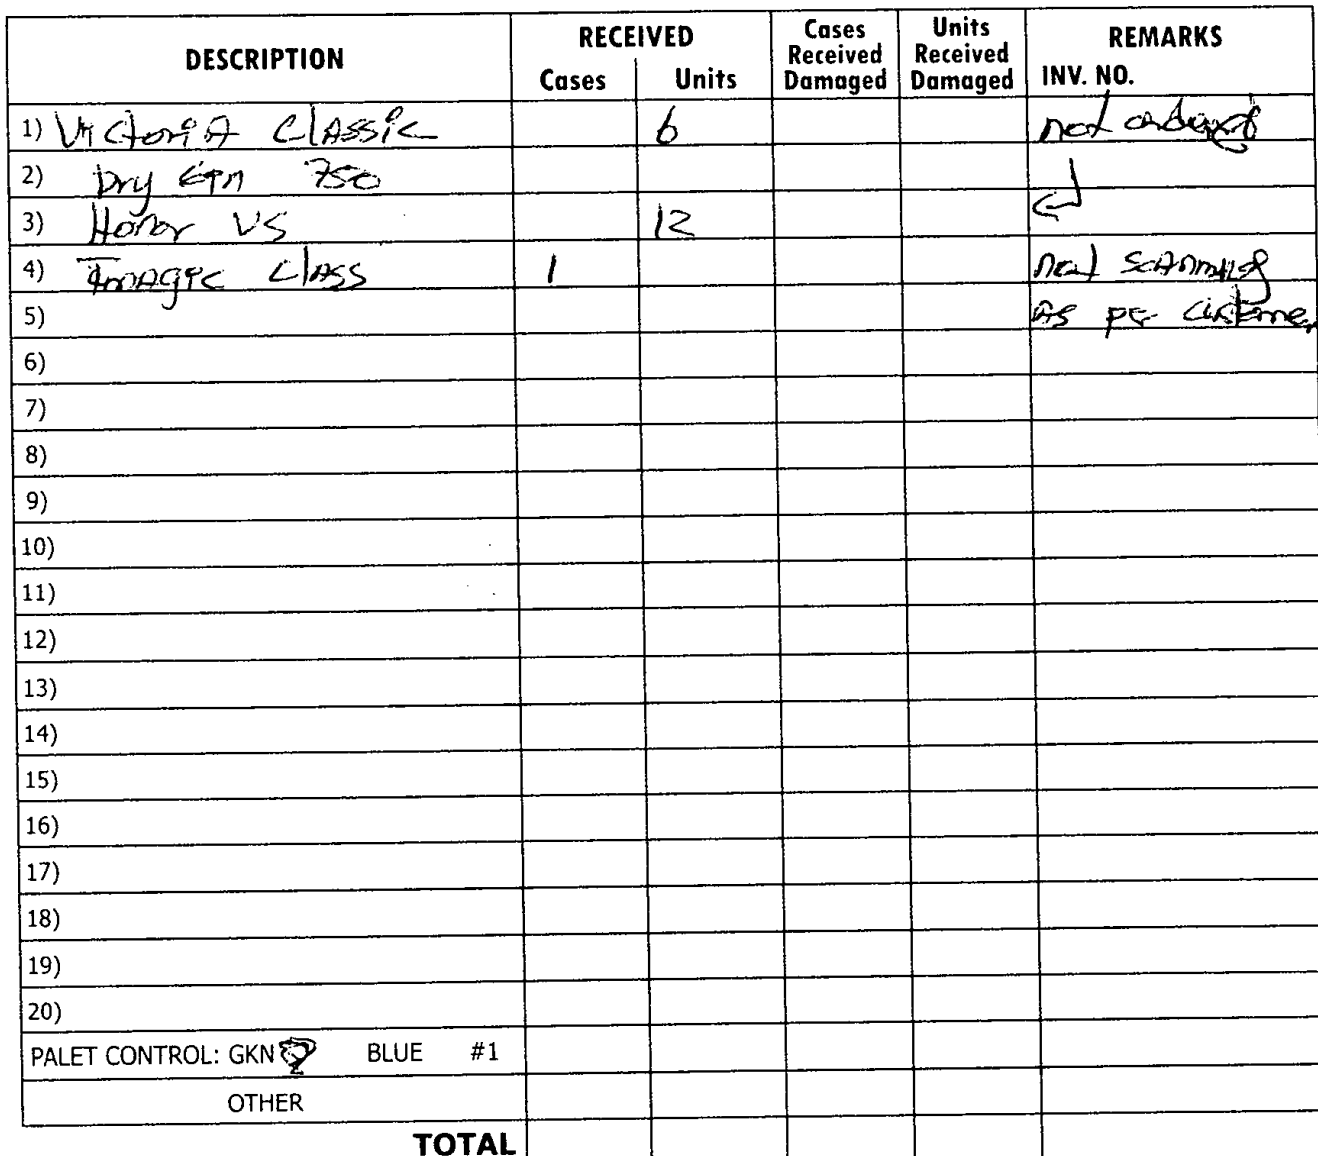 DESCRIPTION RECEIVED Cases Received Damaged Units Received Damaged REMARKS
Cases Units INV. NO.
1) Victoria Classic 6 not ordered
2) Dry 750
3) Honor VS 12
4) Class 1 not scanning
5) As per customer
6)
7)
8)
9)
10)
11)
12)
13)
14)
15)
16)
17)
18)
19)
20)
PALET CONTROL: GKN BLUE #1
OTHER
TOTAL